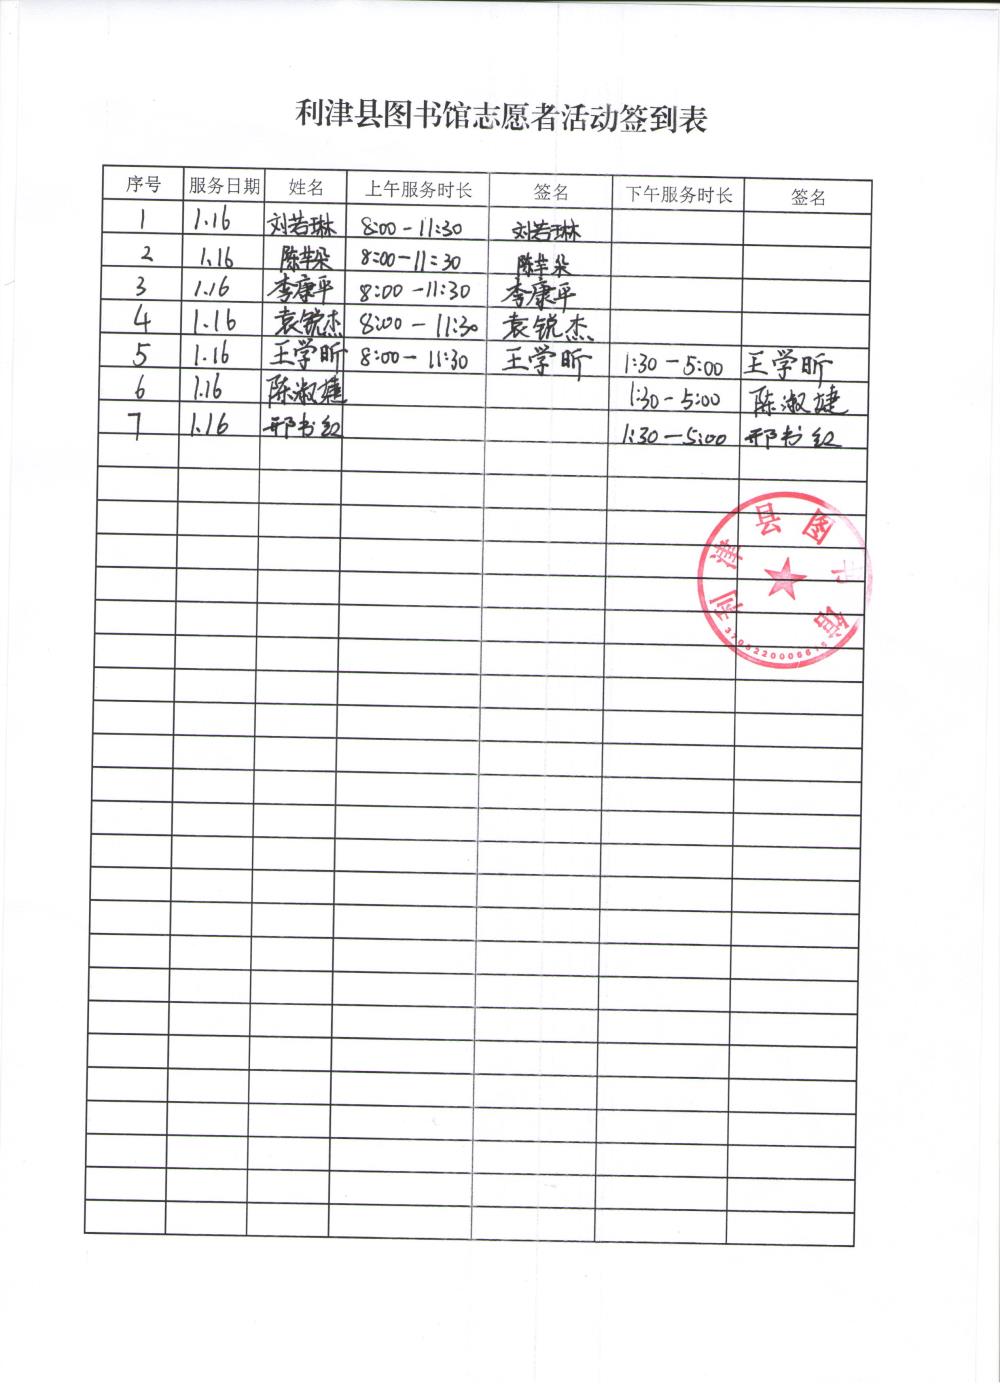 利津县图书馆志愿者活动签到表
序号 服务日期 姓名 上午服务时长 签名 下午服务时长 签名
1 1.16 刘若琳 8:00-11:30 刘若琳
2 1.16 陈芊朵 8:00-11:30 陈芊朵
3 1.16 李康平 8:00-11:30 李康平
4 1.16 袁锐杰 8:00-11:30 袁锐杰
5 1.16 王学昕 8:00-11:30 王学昕 1:30-5:00 王学昕
6 1.16 陈淑婕 1:30-5:00 陈淑婕
7 1.16 邢书红 1:30-5:00 邢书红
利津县图书馆